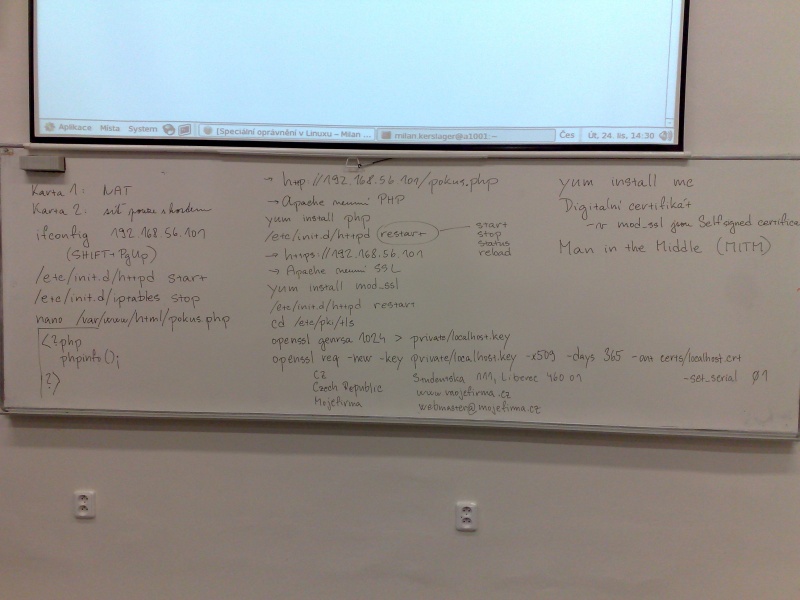 Aplikace Místa System [Speciální oprávnění v Linuxu – Milan ... milan.kerslager@a1001:~ Čes Út, 24. lis, 14:30
Karta 1: NAT
Karta 2: síť pouze s hostem
ifconfig 192.168.56.101
(SHIFT+PgUp)
/etc/init.d/httpd start
/etc/init.d/iptables stop
nano /var/www/html/pokus.php
<?php
phpinfo();
?>
→ http://192.168.56.101/pokus.php
→ Apache neumí PHP
yum install php
/etc/init.d/httpd restart
start
stop
status
reload
→ https://192.168.56.101
→ Apache neumí SSL
yum install mod_ssl
/etc/init.d/httpd restart
cd /etc/pki/tls
openssl genrsa 1024 > private/localhost.key
openssl req -new -key private/localhost.key -x509 -days 365 -out certs/localhost.crt
-set_serial 01
CZ
Czech Republic
Mojefirma
Studentska 111, Liberec 460 01
www.mojefirma.cz
webmaster@mojefirma.cz
yum install mc
Digitální certifikát
→ v mod_ssl jsou Selfsigned certifica
Man in the Middle (MITM)